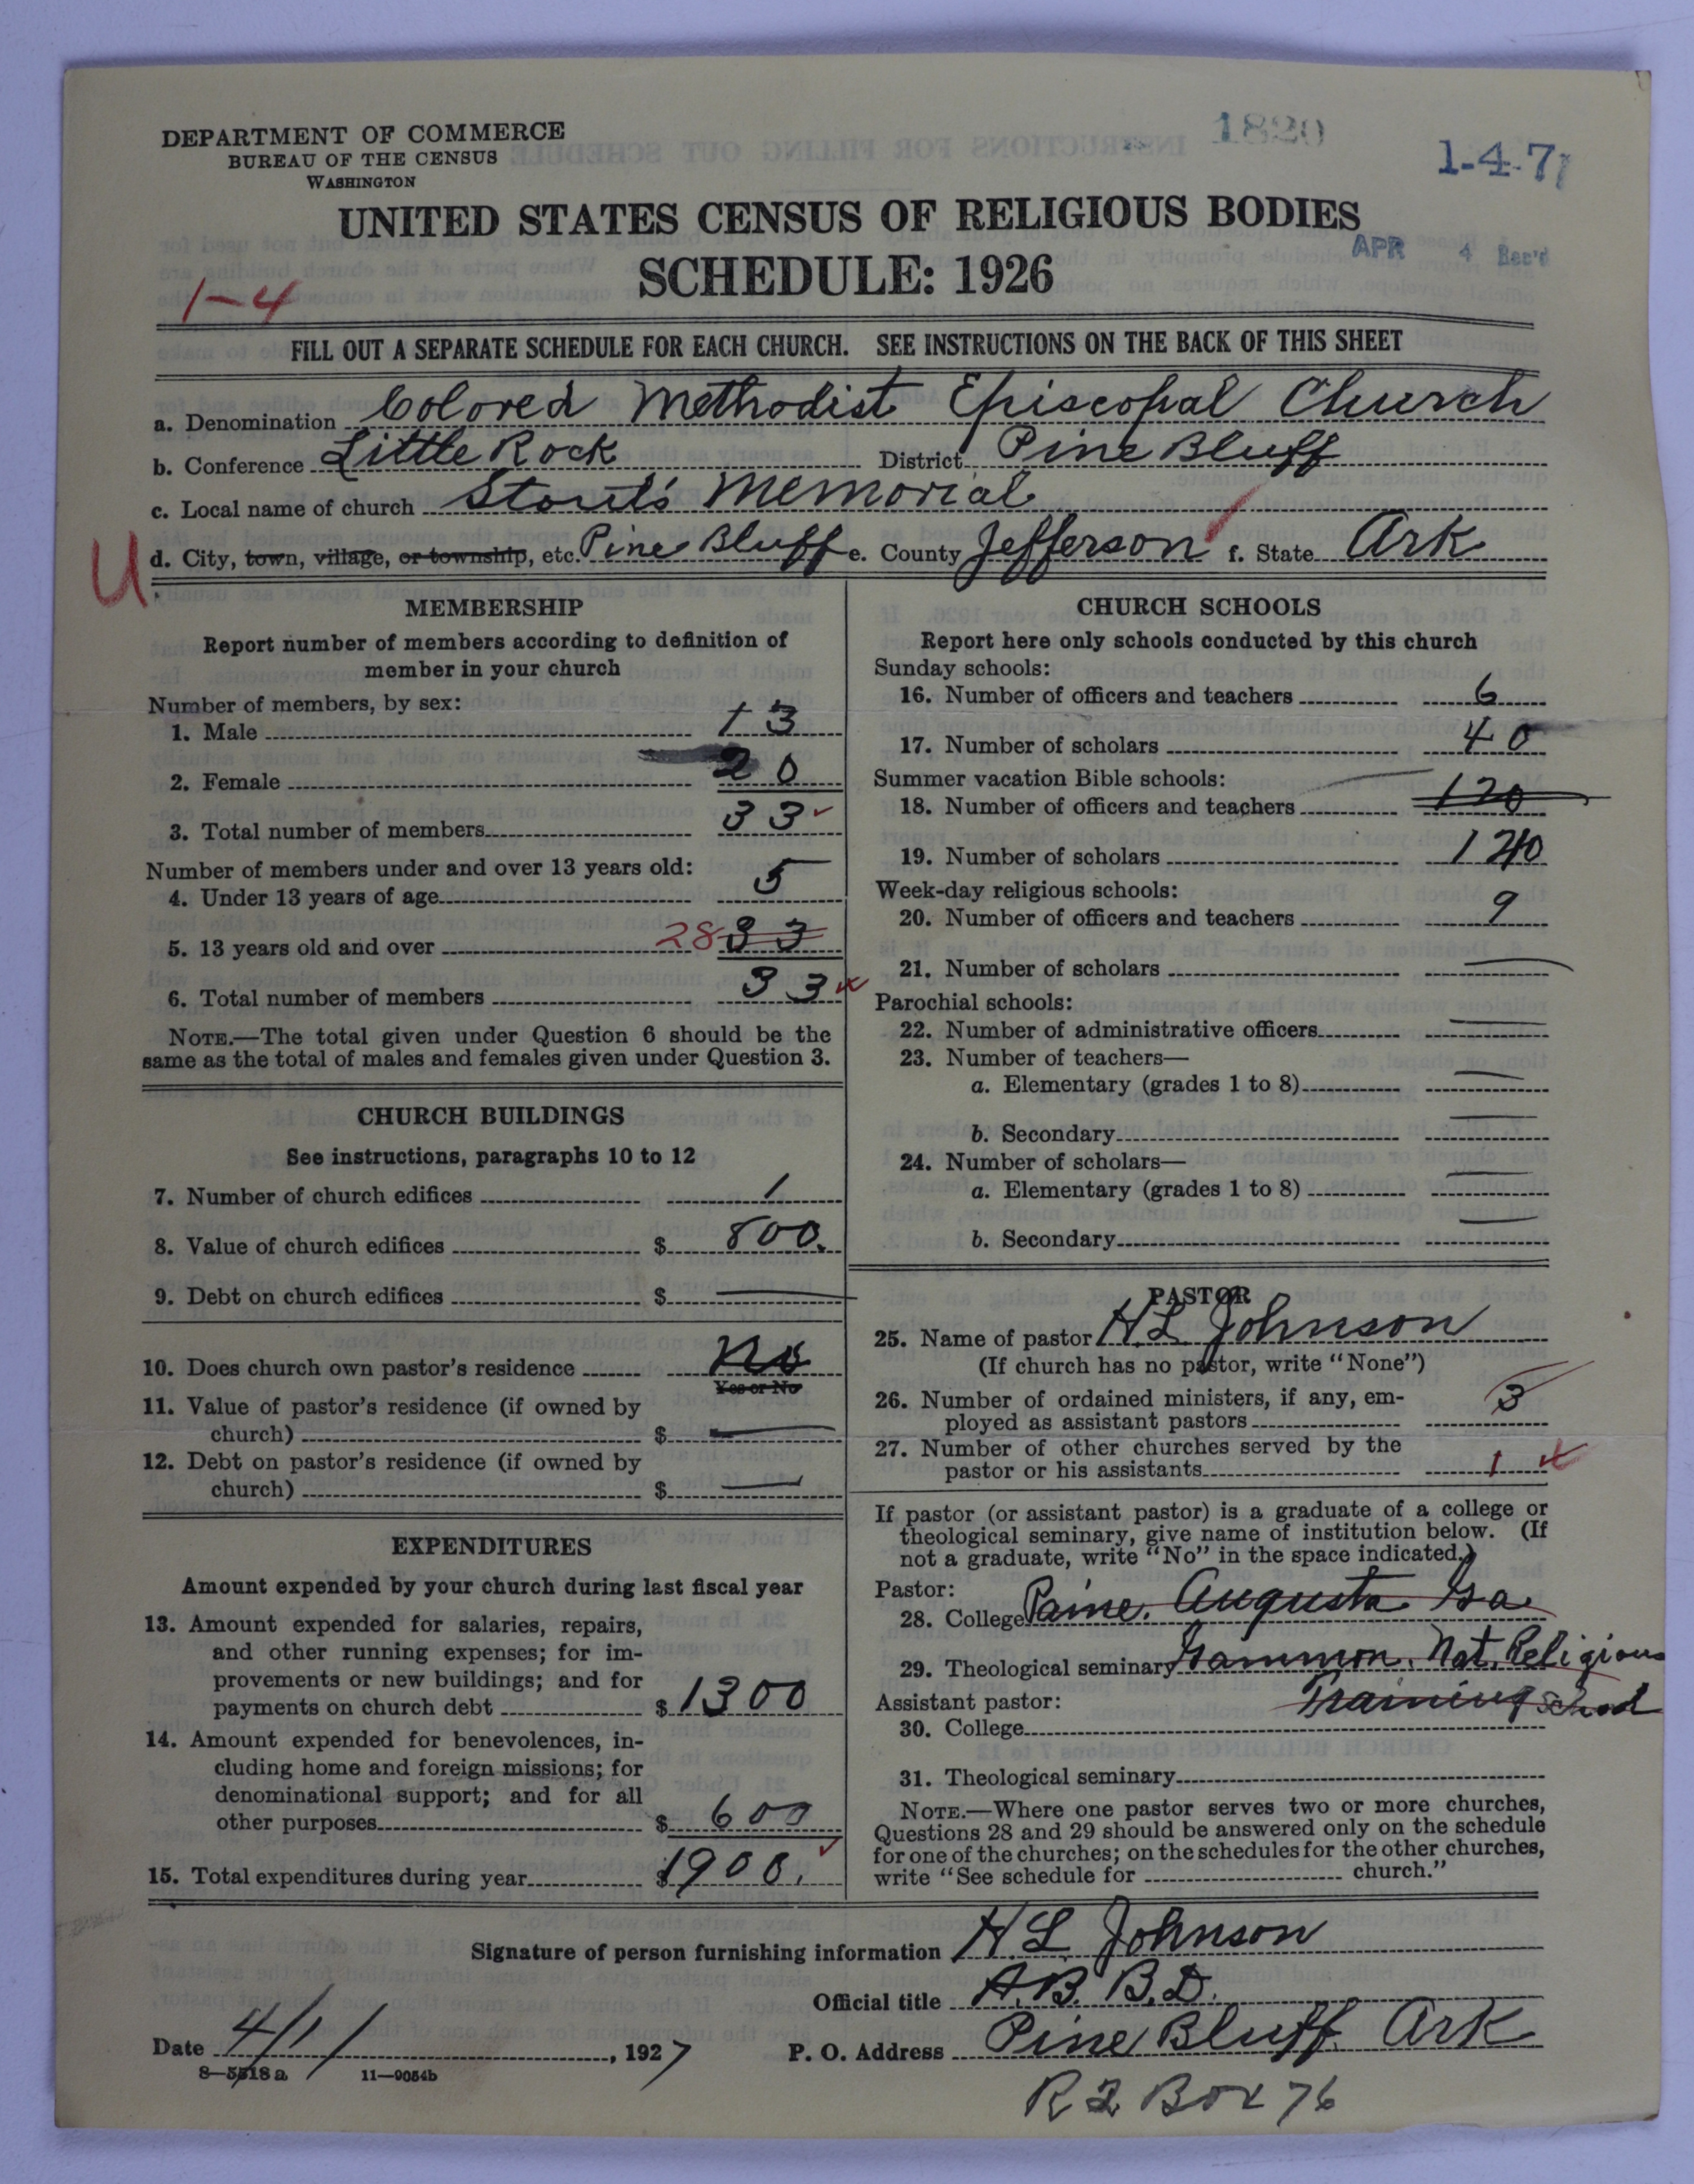 DEPARTMENT OF COMMERCE
BUREAU OF THE CENSUS
WASHINGTON
1820
1-4-7
UNITED STATES CENSUS OF RELIGIOUS BODIES
APR 4 Rec'd
SCHEDULE: 1926
1-4
FILL OUT A SEPARATE SCHEDULE FOR EACH CHURCH. SEE INSTRUCTIONS ON THE BACK OF THIS SHEET
a. Denomination Colored Methodist Episcopal Church
b. Conference Little Rock District Pine Bluff
c. Local name of church Stout's Memorial
U d. City, town, village, or township, etc. Pine Bluff e. County Jefferson f. State Ark
MEMBERSHIP
Report number of members according to definition of
member in your church
Number of members, by sex:
1. Male 13
2. Female 20
3. Total number of members 33
Number of members under and over 13 years old:
4. Under 13 years of age 5
5. 13 years old and over 28 33
6. Total number of members 33
NOTE.—The total given under Question 6 should be the
same as the total of males and females given under Question 3.
CHURCH BUILDINGS
See instructions, paragraphs 10 to 12
7. Number of church edifices 1
8. Value of church edifices $ 800.
9. Debt on church edifices $ —
10. Does church own pastor's residence No
Yes or No
11. Value of pastor's residence (if owned by
church) $ —
12. Debt on pastor's residence (if owned by
church) $ —
EXPENDITURES
Amount expended by your church during last fiscal year
13. Amount expended for salaries, repairs,
and other running expenses; for im-
provements or new buildings; and for
payments on church debt $ 1300
14. Amount expended for benevolences, in-
cluding home and foreign missions; for
denominational support; and for all
other purposes $ 600
15. Total expenditures during year $ 1900.
CHURCH SCHOOLS
Report here only schools conducted by this church
Sunday schools:
16. Number of officers and teachers 6
17. Number of scholars 40
Summer vacation Bible schools:
18. Number of officers and teachers 120
19. Number of scholars 120
Week-day religious schools:
20. Number of officers and teachers 9
21. Number of scholars —
Parochial schools:
22. Number of administrative officers —
23. Number of teachers—
a. Elementary (grades 1 to 8) —
b. Secondary —
24. Number of scholars—
a. Elementary (grades 1 to 8) —
b. Secondary —
PASTOR
25. Name of pastor H L Johnson
(If church has no pastor, write "None")
26. Number of ordained ministers, if any, em-
ployed as assistant pastors 3
27. Number of other churches served by the
pastor or his assistants 1
If pastor (or assistant pastor) is a graduate of a college or
theological seminary, give name of institution below. (If
not a graduate, write "No" in the space indicated.)
Pastor:
28. College Paine. Augusta Ga
29. Theological seminary Gammon. Nat. Religious
Training School
Assistant pastor:
30. College
31. Theological seminary
NOTE.—Where one pastor serves two or more churches,
Questions 28 and 29 should be answered only on the schedule
for one of the churches; on the schedules for the other churches,
write "See schedule for church."
Signature of person furnishing information H. L. Johnson
Official title A.B. B.D.
Date 4/1/, 1927 P. O. Address Pine Bluff. Ark
8—5518a 11—9054b
R 2 Box 76